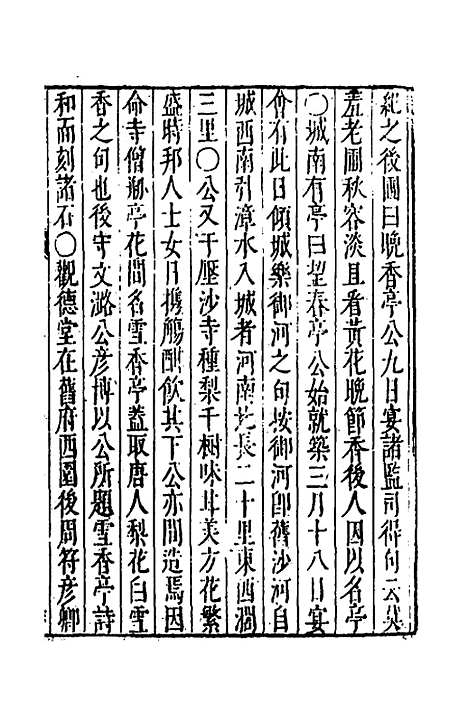 紀之後圃曰晚香亭公九日宴諸監司得句云莫
羞老圃秋容淡且看黃花晚節香後人因以名亭
〇城南有亭曰望春亭公始就築三月十八日宴
會有此日傾城樂御河之句按御河卽舊沙河自
城西南引漳水入城者河南北長二十里東西濶
三里〇公又于壓沙寺種梨千樹味甘美方花繁
盛時邦人士女日攜觴酣飲其下公亦間造焉因
命寺僧剏亭花間名雪香亭葢取唐人梨花白雪
香之句也後守文潞公彥博以公所題雪香亭詩
和而刻諸石〇觀德堂在舊府西園後周符彥卿